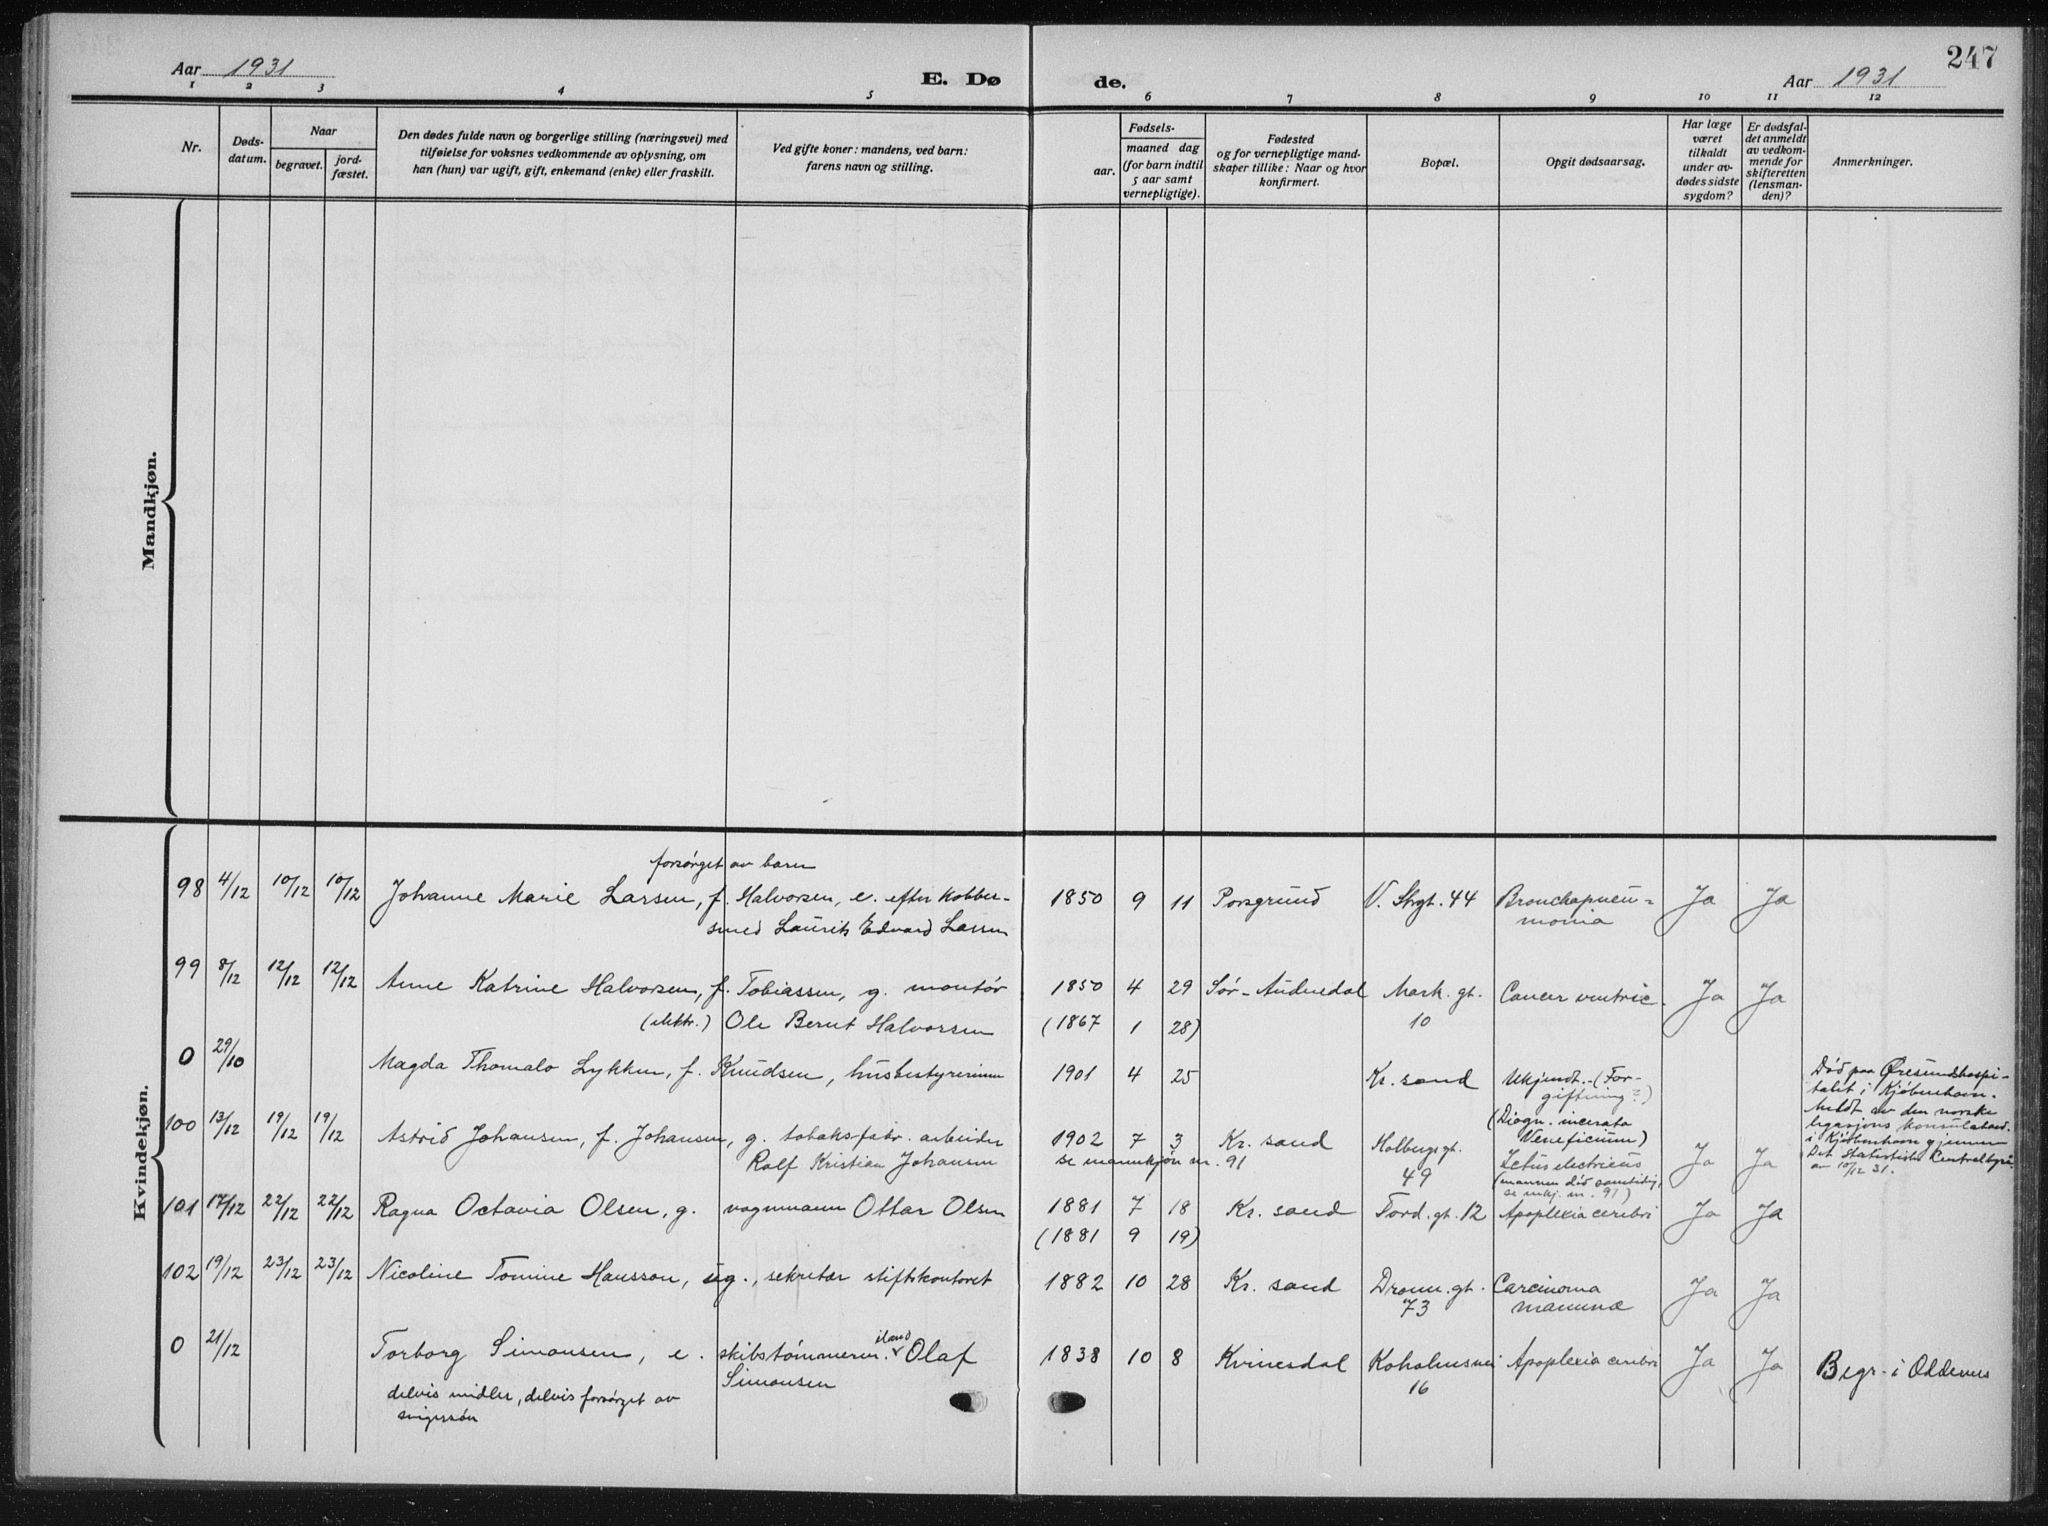 247
Aar 1931
E. Dø
de.
Aar 1931
1 2 3 4 5 6 7 8 9 10 11 12
Nr.
Døds-
datum.
Naar
begravet.
jord-
fæstet.
Den dødes fulde navn og borgerlige stilling (næringsvei) med
tilføielse for voksnes vedkommende av oplysning, om
han (hun) var ugift, gift, enkemand (enke) eller fraskilt.
Ved gifte koner: mandens, ved barn:
farens navn og stilling.
Fødsels-
aar.
maaned dag
(for barn indtil
5 aar samt
vernepligtige).
Fødested
og for vernepligtige mand-
skaper tillike: Naar og hvor
konfirmert.
Bopæl.
Opgit dødsaarsag.
Har læge
været
tilkaldt
under av-
dødes sidste
sygdom?
Er dødsfal-
det anmeldt
av vedkom-
mende for
skifteretten
(lensman-
den)?
Anmerkninger.
Mandkjøn.
Kvindekjøn.
forsørget av barn
98 4/12 10/12 10/12 Johanne Marie Larsen, f. Halvorsen, e. efter kobber- 1850 9 11 Porsgrund V. Strgt. 44 Bronchopneu- Ja Ja
smed Laurits Edvard Larsen monia
99 8/12 12/12 12/12 Anne Katrine Halvorsen, f. Tobiassen, g. montør 1850 4 29 Sør-Audnedal Mark. gt. Cancer ventric. Ja Ja
(elektr.) Ole Bernt Halvorsen (1867 1 28) 10
0 29/10 Magda Thomalo Lykken, f. Knudsen, husbestyrerinne 1901 4 25 Kr. sand Ukjendt. (For-
giftning?)
(Diogn. incerata
Veneficium)
Død paa Øresundshospi-
talet i Kjøbenhavn.
Meldt av den norske
legasjons konsulatavd.
i Kjøbenhavn gjennem
Det Statistiske Centralbyrå
av 10/12 31.
100 13/12 19/12 19/12 Astrid Johansen, f. Johansen, g. tobaksfabr. arbeider 1902 7 3 Kr. sand Holbergs gt. Ja Ja
Rolf Kristian Johansen se mannkjøn nr. 91 49 Ictus electricus
(mannen død samtidig,
se mkj. nr. 91)
101 17/12 22/12 22/12 Ragna Octavia Olsen, g. vognmann Ottar Olsen 1881 7 18 Kr. sand Tord. gt. 12 Apoplexia cerebri Ja Ja
(1881 9 19)
102 19/12 23/12 23/12 Nicoline Tomine Hansson, ug., sekretær stiftskontoret 1882 10 28 Kr. sand Dronn. gt. Carcinoma Ja Ja
73 mammæ
0 21/12 Torborg Simonsen, e. skibstømmerm. iland Olaf 1838 10 8 Kvinesdal Koholmsvei Apoplexia cerebri Ja Ja Begr. i Oddernes
Simonsen 16
delvis midler, delvis forsørget av
svigersøn